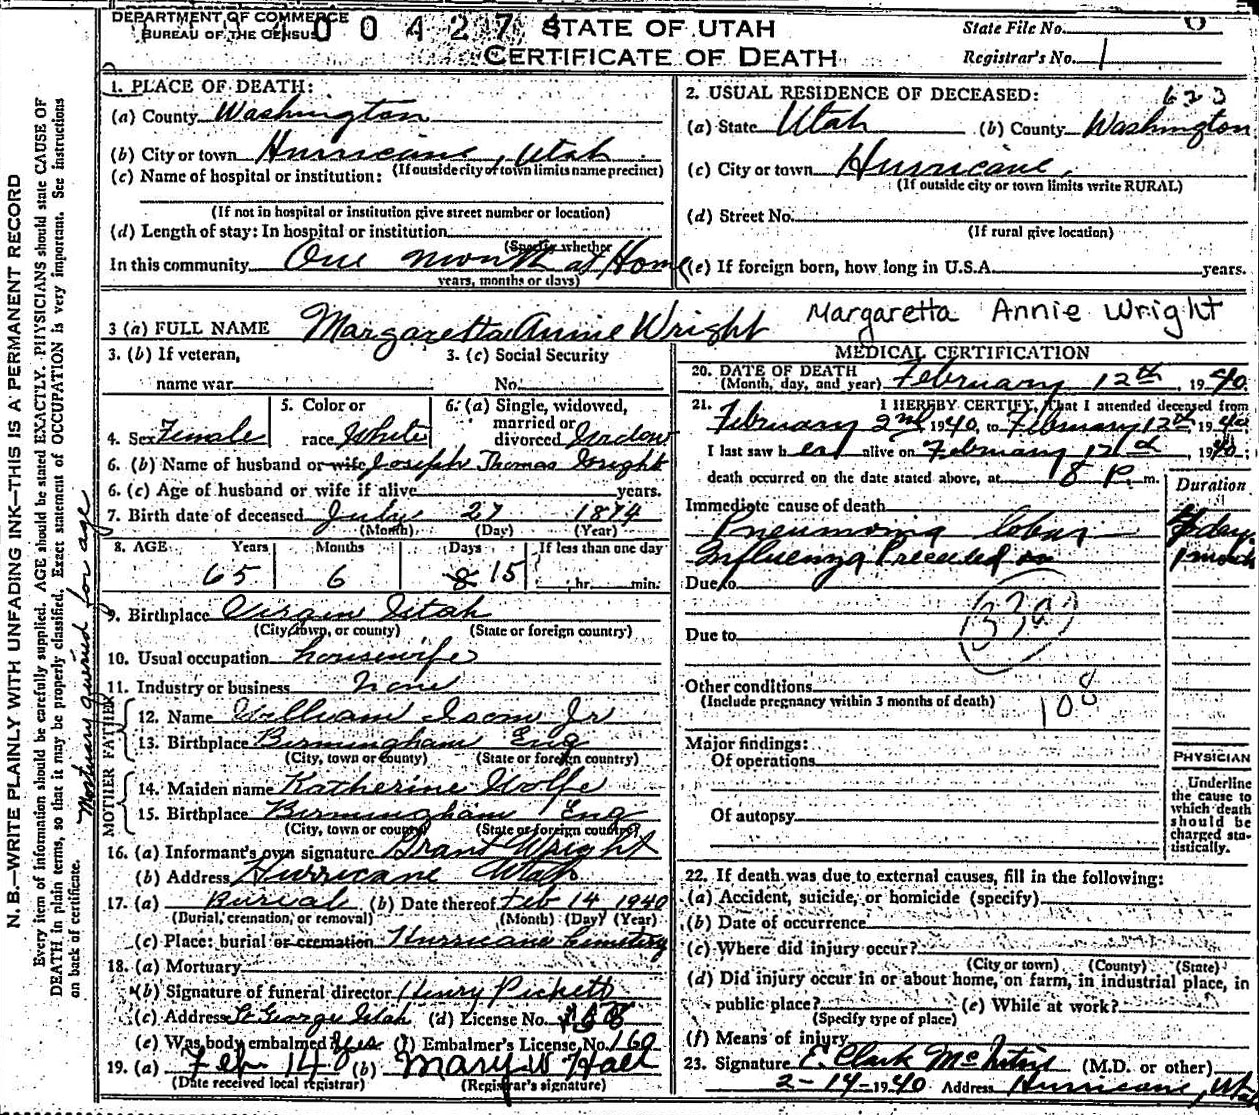 DEPARTMENT OF COMMERCE
BUREAU OF THE CENSUS
STATE OF UTAH
CERTIFICATE OF DEATH
State File No.
Registrar's No. 1
1. PLACE OF DEATH:
(a) County Washington
(b) City or town Hurricane, Utah
(If outside city or town limits name precinct)
(c) Name of hospital or institution:
(If not in hospital or institution give street number or location)
(d) Length of stay: In hospital or institution
(Specify whether
In this community One month at Home
years, months or days)
2. USUAL RESIDENCE OF DECEASED: 623
(a) State Utah (b) County Washington
(c) City or town Hurricane,
(If outside city or town limits write RURAL)
(d) Street No.
(If rural give location)
(e) If foreign born, how long in U.S.A. years.
3 (a) FULL NAME Margaretta Annie Wright Margaretta Annie Wright
3. (b) If veteran, name war
3. (c) Social Security No.
4. Sex Female
5. Color or race White
6. (a) Single, widowed, married or divorced Widow
6. (b) Name of husband or wife Joseph Thomas Wright
6. (c) Age of husband or wife if alive years.
7. Birth date of deceased July 27 1874
(Month) (Day) (Year)
8. AGE Years Months Days If less than one day
65 6 8 15 hr. min.
9. Birthplace Virgin Utah
(City, town, or county) (State or foreign country)
10. Usual occupation housewife
11. Industry or business none
FATHER
12. Name William Isom Jr
13. Birthplace Birmingham Eng
(City, town or county) (State or foreign country)
MOTHER
14. Maiden name Katherine Wolfe
15. Birthplace Birmingham Eng
(City, town or county) (State or foreign country)
16. (a) Informant's own signature Grant Wright
(b) Address Hurricane Utah
17. (a) Burial (b) Date thereof Feb 14 1940
(Burial, cremation, or removal) (Month) (Day) (Year)
(c) Place: burial or cremation Hurricane Cemetery
18. (a) Mortuary
(b) Signature of funeral director Henry Pickett
(c) Address St George Utah (d) License No.
(e) Was body embalmed? yes (f) Embalmer's License No. 160
19. (a) Feb 14 (b) Mary W Hall
(Date received local registrar) (Registrar's signature)
MEDICAL CERTIFICATION
20. DATE OF DEATH
(Month, day, and year) February 12th, 1940.
21. I HEREBY CERTIFY, That I attended deceased from
February 2nd 1940, to February 12th, 1940
I last saw her alive on February 12th, 1940;
death occurred on the date stated above, at 8 P. m.
Duration
Immediate cause of death
Pneumonia lobar day.
Influenza Preceded 1 month
Due to
33a
Due to
Other conditions
(Include pregnancy within 3 months of death)
108
Major findings:
Of operations
Of autopsy
PHYSICIAN
Underline
the cause to
which death
should be
charged sta-
tistically.
22. If death was due to external causes, fill in the following:
(a) Accident, suicide, or homicide (specify)
(b) Date of occurrence
(c) Where did injury occur?
(City or town) (County) (State)
(d) Did injury occur in or about home, on farm, in industrial place, in
public place? (e) While at work?
(Specify type of place)
(f) Means of injury
23. Signature E. Clark McIntire (M.D. or other)
2-14-1940 Address Hurricane, Utah
N. B.—WRITE PLAINLY WITH UNFADING INK—THIS IS A PERMANENT RECORD
Every item of information should be carefully supplied. AGE should be stated EXACTLY. PHYSICIANS should state CAUSE OF
DEATH in plain terms, so that it may be properly classified. Exact statement of OCCUPATION is very important. See instructions
on back of certificate.
Mortuary queried for age